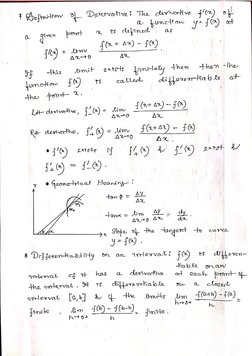 * Definition of Derivative: The derivative f'(x) of
a function y = f(x) at
a given point x is defined as
f'(x) = lim Δx→0 f(x + Δx) - f(x) / Δx
If this limit exists finitely then the
function f(x) is called differentiable at
the point x.
Left derivative, f'_(x) = lim Δx→0 f(x+Δx) - f(x) / Δx
Rt derivative, f'+(x) = lim Δx→0 f(x+Δx) - f(x) / Δx
• f'(x) exists if f'+(x) & f'_(x) exist &
f'+(x) = f'_(x).
• Geometrical Meaning:
Y
tan φ = Δy / Δx
tan α = lim Δx→0 Δy / Δx = dy / dx
Slope of the tangent to curve
y = f(x).
* Differentiability on an interval: f(x) is differen-
tiable on an
interval if it has a derivative at each point of
the interval. It is differentiable on a closed
interval [a,b] if the limits lim h→0+ f(a+h) - f(a) / h =
finite, lim h→0+ f(b) - f(b-h) / h = finite.